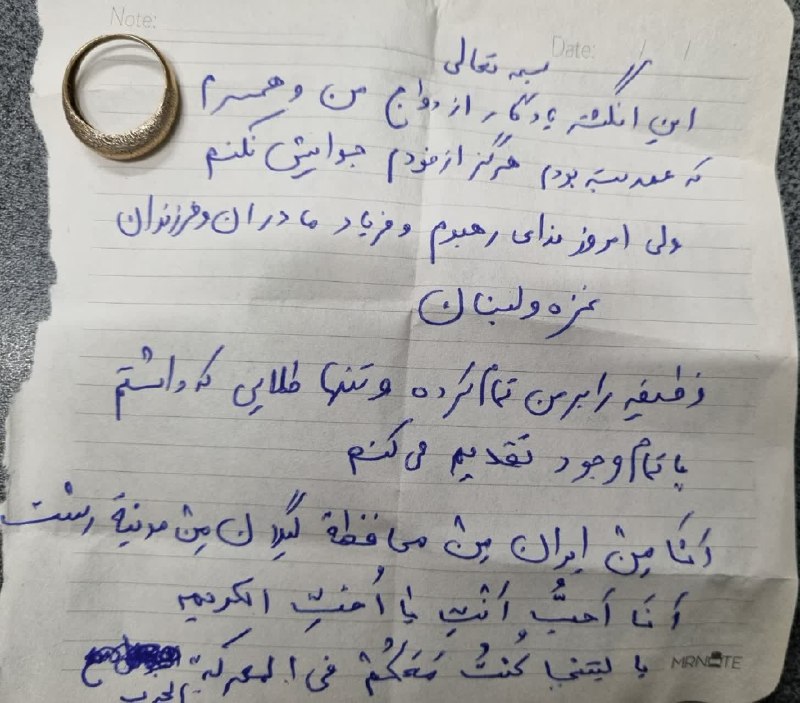 Note:
Date: / /
بسمه تعالی
این انگشتر یادگار ازدواج من و همسرم
که عهد بسته بودم هرگز از خودم جدایش نکنم
ولی امروز ندای رهبرم و فریاد مادران و فرزندان
غزه و لبنان
وظیفه را بر من تمام کرده و تنها طلایی که داشتم
با تمام وجود تقدیم می کنم
أنَا مِن ایران مِن محافظة گیلان مِن مدنیة رشت
أنَا أحبُّ أنتِ یا أُختِ الکریمه
یا لیتنی کُنتُ مَعَکُمْ فی المعرکة
الحرب
MRNOTE